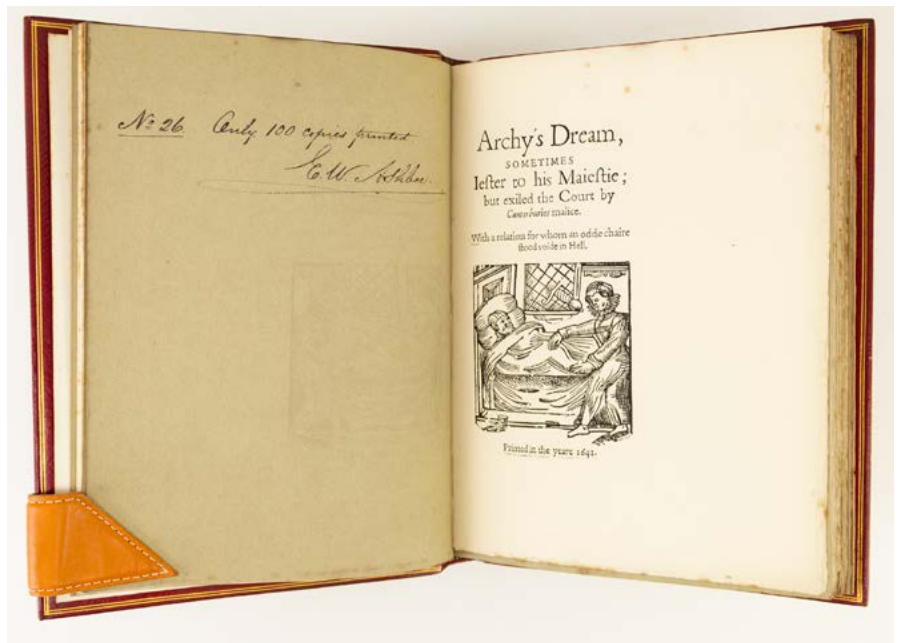 No 26. Only 100 copies printed
E.W. Ashbee.
Archy's Dream,
SOMETIMES
Ieſter to his Maieſtie;
but exiled the Court by
Canterburies malice.
With a relation for whom an odde chaire
ſtood voide in Hell.
Printed in the yeare 1641.